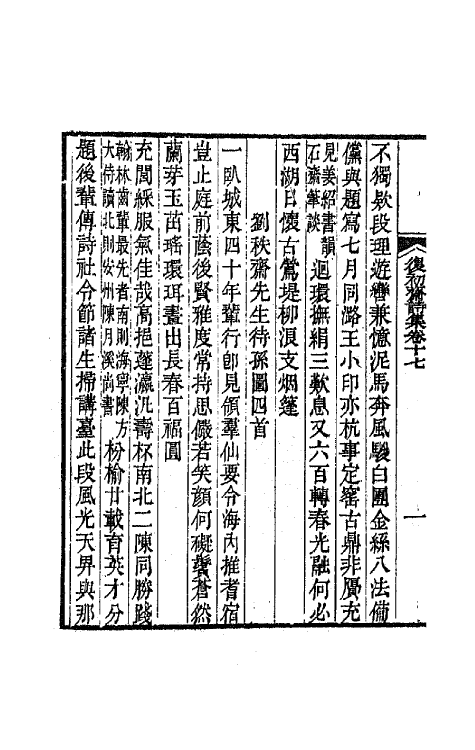 復初齋詩集卷十七
一
不獨歎段理遊轡兼憶泥馬奔風駿白團金絲八法備
儻與題寫七月同潞王小印亦杭事定窑古鼎非贋充
見姜紹書韻
石齋筆談
迴環撫絹三歎息又六百轉春光融何必
西湖日懷古鶯堤柳浪支烟篷
劉秩齋先生待孫圖四首
一臥城東四十年輩行即見領羣仙要令海内推耆宿
豈止庭前蓺後賢雅度常持思儼若笑顔何礙鬢蒼然
蘭芽玉茁瑤環珥畫出長春百福圓
充閭綵服氣佳哉高挹蓬瀛汎壽杯南北二陳同勝踐
翰林齒輩最先者南則海寧陳方
大侍讀北則安州陳月溪尚書
枌榆廿載育英才分
題後輩傳詩社令節諸生掃講臺此段風光天畀與那